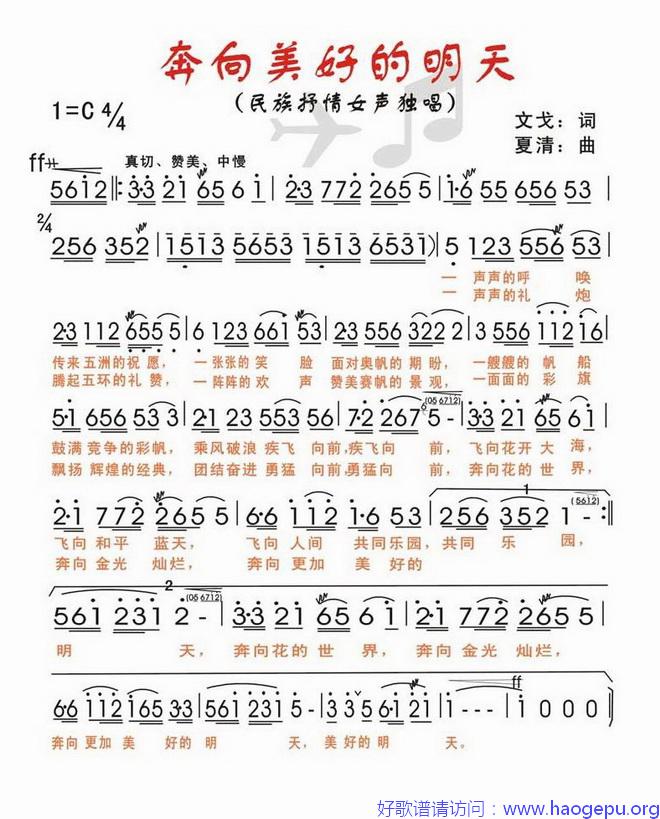 奔向美好的明天
(民族抒情女声独唱)
1=C 4/4
文戈：词
夏清：曲
ff 真切、赞美、中慢
5612 ‖: 3·3 21 65 6 1 | 2·3 772 265 5 | 1·6 55 656 53 |
2/4
256 352 | 1513 5653 1513 6531) | 5 123 556 53 |
一 声声的呼 唤
一 声声的礼 炮
2·3 112 655 5 | 6 123 661 53 | 2·3 556 322 2 | 3 556 112 16 |
传来 五洲的祝 愿， 一张张的 笑 脸 面对奥帆的 期 盼， 一艘艘的 帆 船
腾起 五环的礼 赞， 一阵阵的 欢 声 赞美赛帆的 景 观， 一面面的 彩 旗
5·1 656 553 3 | 2·1 23 553 56 | 7·2 2676 5 - | 3·3 21 65 6 1 |
鼓满 竞争的彩帆， 乘风破浪 疾飞 向前,疾飞向 前， 飞向花开 大 海，
飘扬 辉煌的经典， 团结奋进 勇猛 向前,勇猛向 前， 奔向花的 世 界，
2·1 772 265 5 | 6·6 112 1·6 53 | 256 352 1 - :‖
(5612)
飞向 和平 蓝天， 飞向 人间 共同乐园，共同 乐 园，
奔向 金光 灿烂， 奔向 更加 美 好的
2
561 231 2 - | 3·3 21 65 6 1 | 2·1 772 265 5 |
(05 6712)
明 天， 奔向花的 世 界， 奔向 金光 灿烂，
ff
6·6 112 165 3·3 | 561 231 5 - | 3 35 6·1 21 | 1 - - - | 1 0 0 0 ‖
奔向 更加 美 好的 明 天，美 好的 明 天。
好歌谱请访问：www.haogepu.org